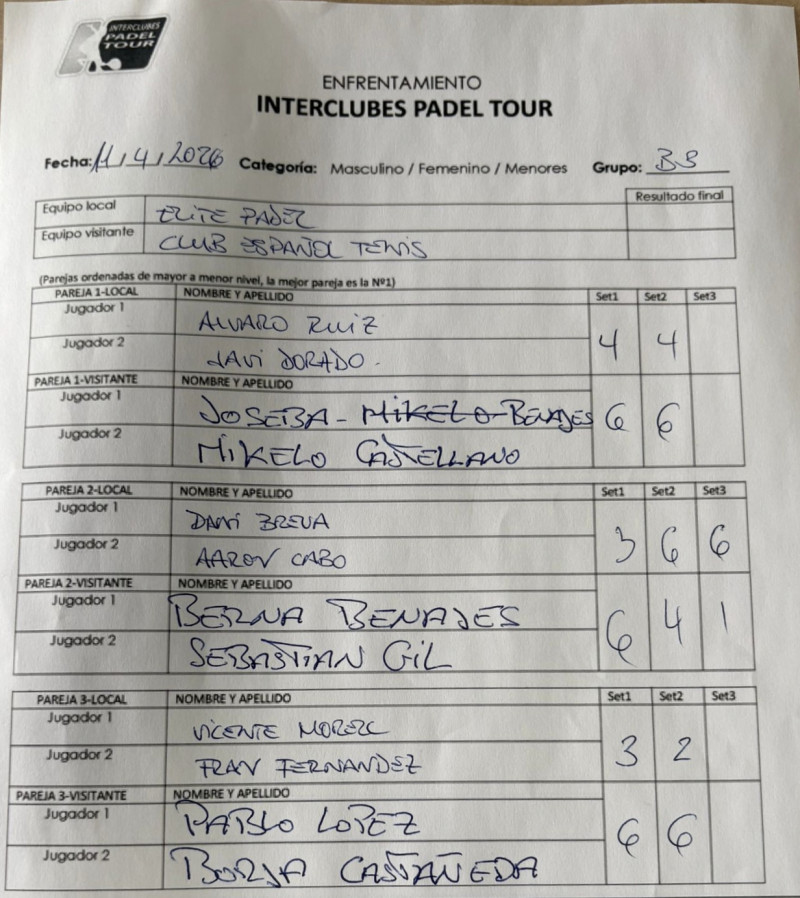 INTERCLUBES
PADEL
TOUR
ENFRENTAMIENTO
INTERCLUBES PADEL TOUR
Fecha: 11/4/2026 Categoría: Masculino / Femenino / Menores Grupo: B3
Resultado final
Equipo local ELITE PADEL
Equipo visitante CLUB ESPAÑOL TENIS
(Parejas ordenadas de mayor a menor nivel, la mejor pareja es la Nº1)
PAREJA 1-LOCAL NOMBRE Y APELLIDO Set1 Set2 Set3
Jugador 1 ALVARO RUIZ
Jugador 2 JAVI DORADO. 4 4
PAREJA 1-VISITANTE NOMBRE Y APELLIDO
Jugador 1 JOSEBA - MIKELO - BENAJES 6 6
Jugador 2 MIKELO CASTELLANO
PAREJA 2-LOCAL NOMBRE Y APELLIDO Set1 Set2 Set3
Jugador 1 DANI BREVA
Jugador 2 AARON CABO 3 6 6
PAREJA 2-VISITANTE NOMBRE Y APELLIDO
Jugador 1 BERNA BENAJES 6 4 1
Jugador 2 SEBASTIAN GIL
PAREJA 3-LOCAL NOMBRE Y APELLIDO Set1 Set2 Set3
Jugador 1 VICENTE
Jugador 2 FRAN FERNANDEZ 3 2
PAREJA 3-VISITANTE NOMBRE Y APELLIDO
Jugador 1 PABLO LOPEZ 6 6
Jugador 2 BORJA CASTAÑEDA